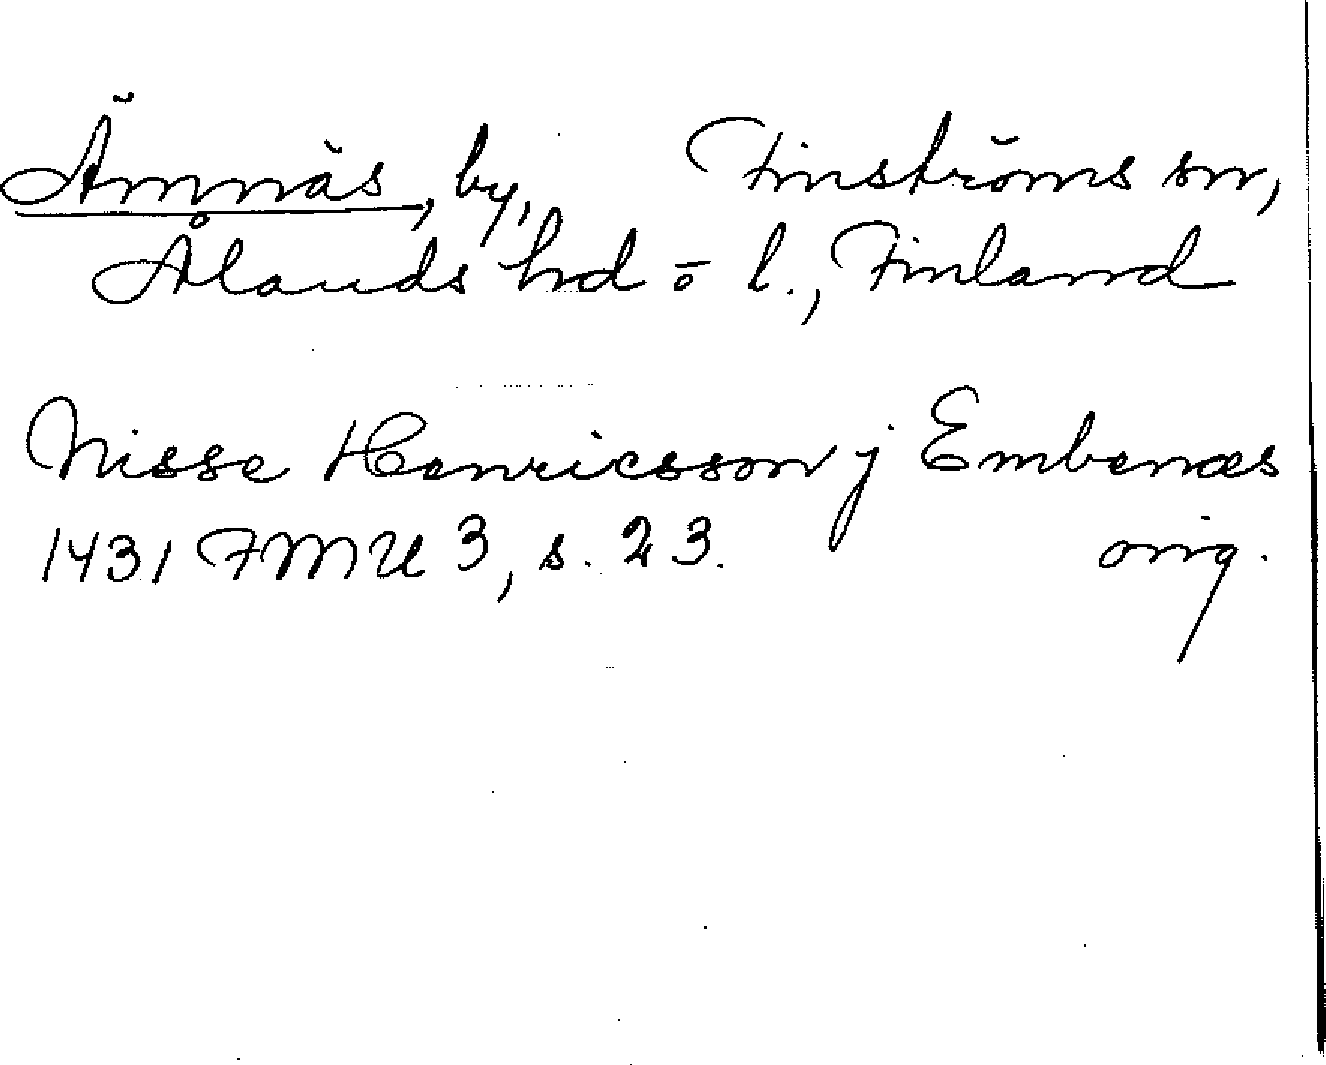 Ämnäs, by, Finströms sn,
Ålands hd o l., Finland
Nisse Henricsson j Embenæs
1431 FMU 3, s. 23. orig.